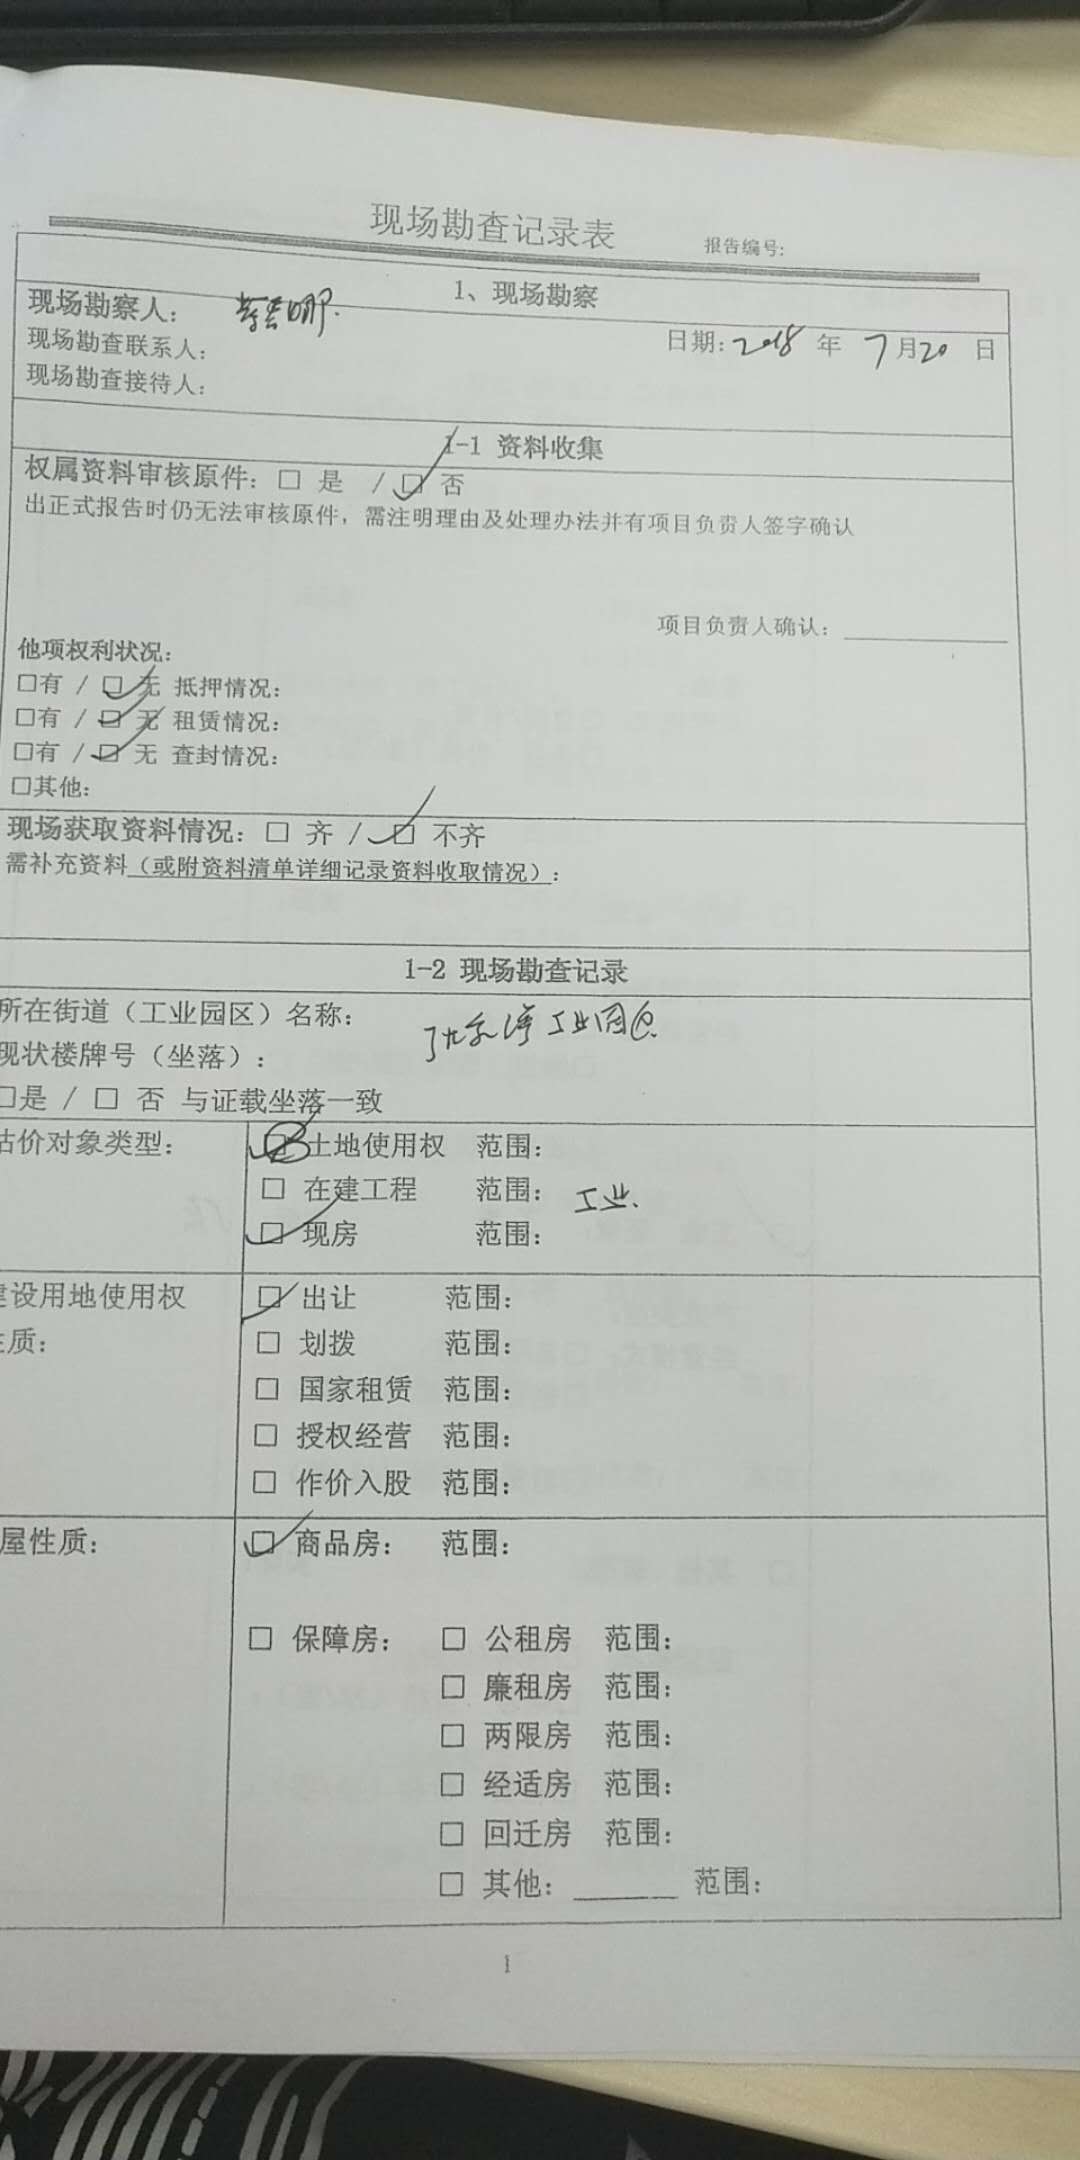 现场勘查记录表
报告编号:
1、现场勘察
现场勘察人:
日期: 2018 年 7 月 20 日
现场勘查联系人:
现场勘查接待人:
1-1 资料收集
权属资料审核原件: □ 是 / ☑ 否
出正式报告时仍无法审核原件，需注明理由及处理办法并有项目负责人签字确认
项目负责人确认:
他项权利状况:
□有 / ☑ 无 抵押情况:
□有 / ☑ 无 租赁情况:
□有 / ☑ 无 查封情况:
□其他:
现场获取资料情况: □ 齐 / ☑ 不齐
需补充资料（或附资料清单详细记录资料收取情况）:
1-2 现场勘查记录
所在街道（工业园区）名称: 张家湾工业园区
现状楼牌号（坐落）:
□是 / □ 否 与证载坐落一致
估价对象类型:
土地使用权 范围:
□ 在建工程 范围: 工业.
☑ 现房 范围:
建设用地使用权
性质:
☑ 出让 范围:
□ 划拨 范围:
□ 国家租赁 范围:
□ 授权经营 范围:
□ 作价入股 范围:
屋性质:
☑ 商品房: 范围:
□ 保障房: □ 公租房 范围:
□ 廉租房 范围:
□ 两限房 范围:
□ 经适房 范围:
□ 回迁房 范围:
□ 其他: ______ 范围:
1